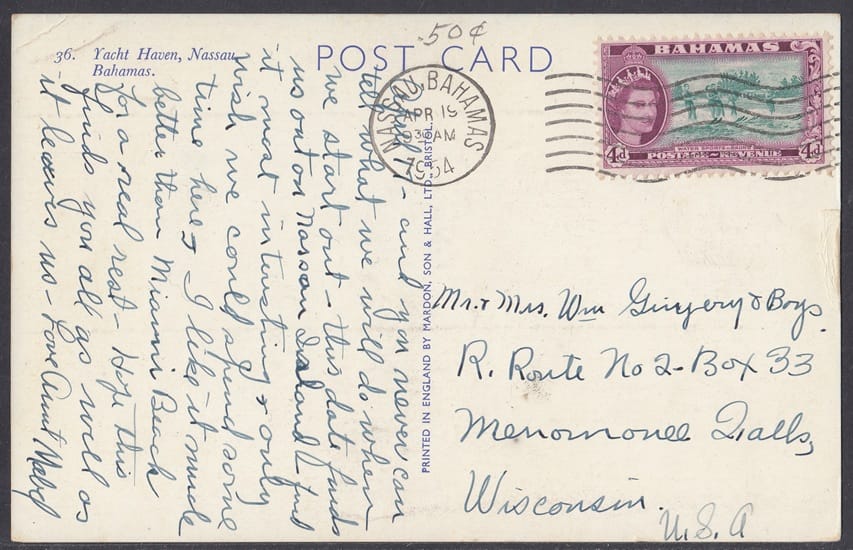 .50¢
36. Yacht Haven, Nassau,
Bahamas.
POST CARD
NASSAU, BAHAMAS
APR 19
930 AM
1954
BAHAMAS
4d 4d
WATER SPORTS
POSTAGE REVENUE
PRINTED IN ENGLAND BY MARDON, SON & HALL, LTD., BRISTOL.
- and you never can
tell what we will do when
we start out - this date finds
us out on Nassau Island & find
it most intersting & only
wish we could spend some
time here & I like it much
better then Miami Beach
for a real rest - Hope this
finds you all as well as
it leaves us - Love Aunt Mabel
Mr. & Mrs. Wm Gingery & Boys.
R. Route No 2 - Box 33
Menomonee Falls,
Wisconsin.
U.S.A